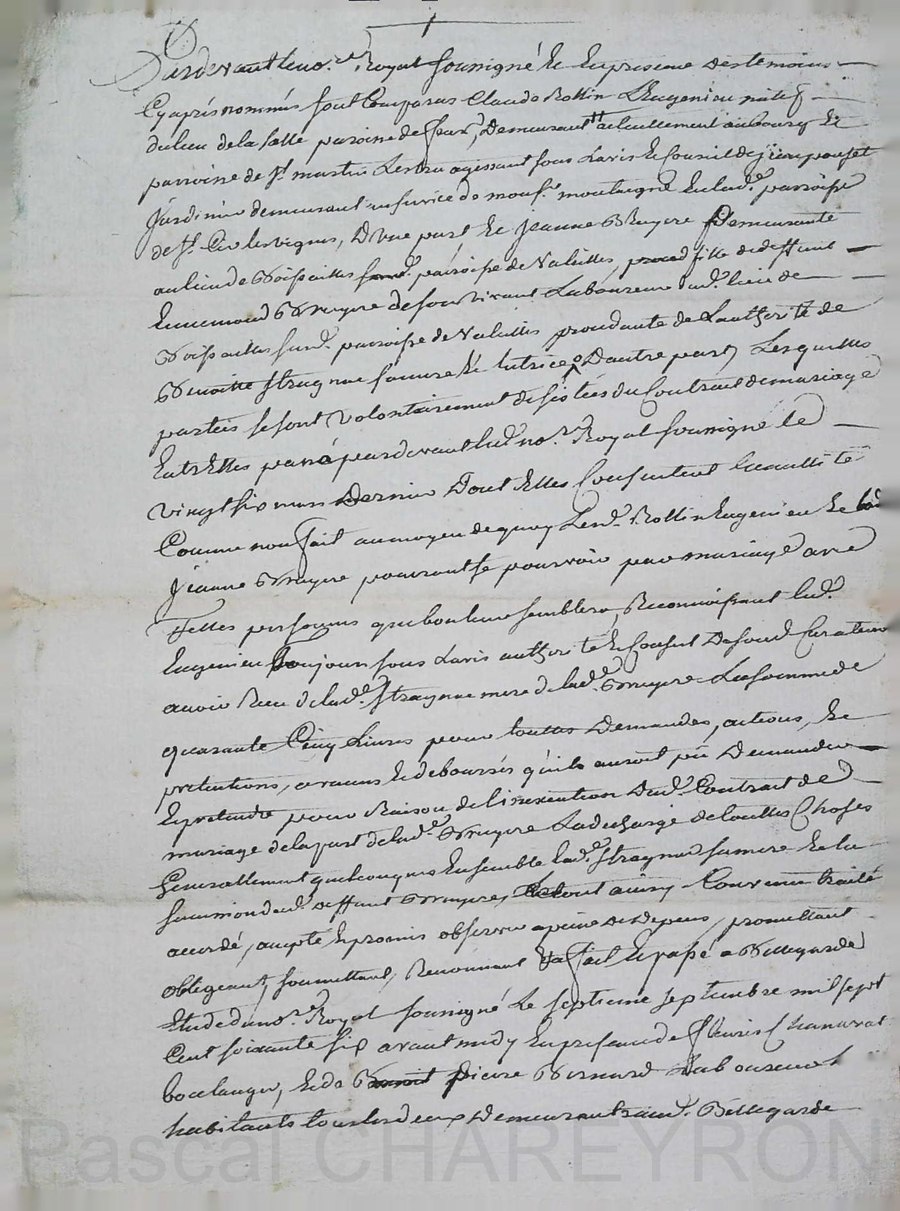 Pardevant le no.re Royal soussigné et en presence des temoins
Cy après nommés sont Comparus Claude Rottin L'Eugenieu natif
du lieu de la salle paroisse de demeurant actuellement au bourg et
parroisse de St. martin Lestra agissant sous L'avis et Conseil de jean
jardinier demeurant au service de monsr. montaigne en lad.e parroisse
de St. Cir les vignes, D'une part et jeanne Bruyere Demeurante
au lieu de Boissailles parroisse de Valeilles fille de deffunt
Ennemond Bruyere de son vivant Laboureur aud. lieu de
Boissailles susd. parroisse de Valeilles procedante de L'authorité de
Benoitte Stragnat sa mere et tutrice D'autre part, Lesquelles
parties se sont volontairement desistées du Contract de mariage
Entr'Elles passé pardevant led. no.re Royal soussigné le
vingt six mars Dernier Dont Elles Consentent la nullité
Comme non fait au moyen de quoy Lesd. Rottin Eugenieu et lad
Jeanne Bruyere pourront se pourvoir par mariage avec
Telles personnes que bon leur semblera, Reconnoissant led.
Eugenieu toujours sous L'avis authorité et Conseil De sond. Curateur
avoir Reçu de lad.e Stragnat mere de lad.e Bruyere La somme de
quarante Cinq Livres pour toutes Demandes, actions, et
pretentions, et deboursés qu'ils auroit pû Demander
Et pretendre pour Raison de L'inexecution Dud. Contract de
mariage de la part de lad.e Bruyere La decharge de touttes Choses
Generallement quelconques Ensemble lad.e Stragnat sa mere et la
succession dud. deffunt Bruyere, Le tout ainsy Convenu traité
accordé, accepté et promis observer a peine de depens, promettant
obligeant, soumettant, Renonnant &a fait et passé a Bellegarde
Etude du no.re Royal soussigné Le septieme septembre mil sept
Cent soixante six avant midy En presence de fleuris Chanavat
boulanger, et de Pierre Bernard Laboureur
habitants tous les deux Demeurants aud. Bellegarde
Pascal CHAREYRON